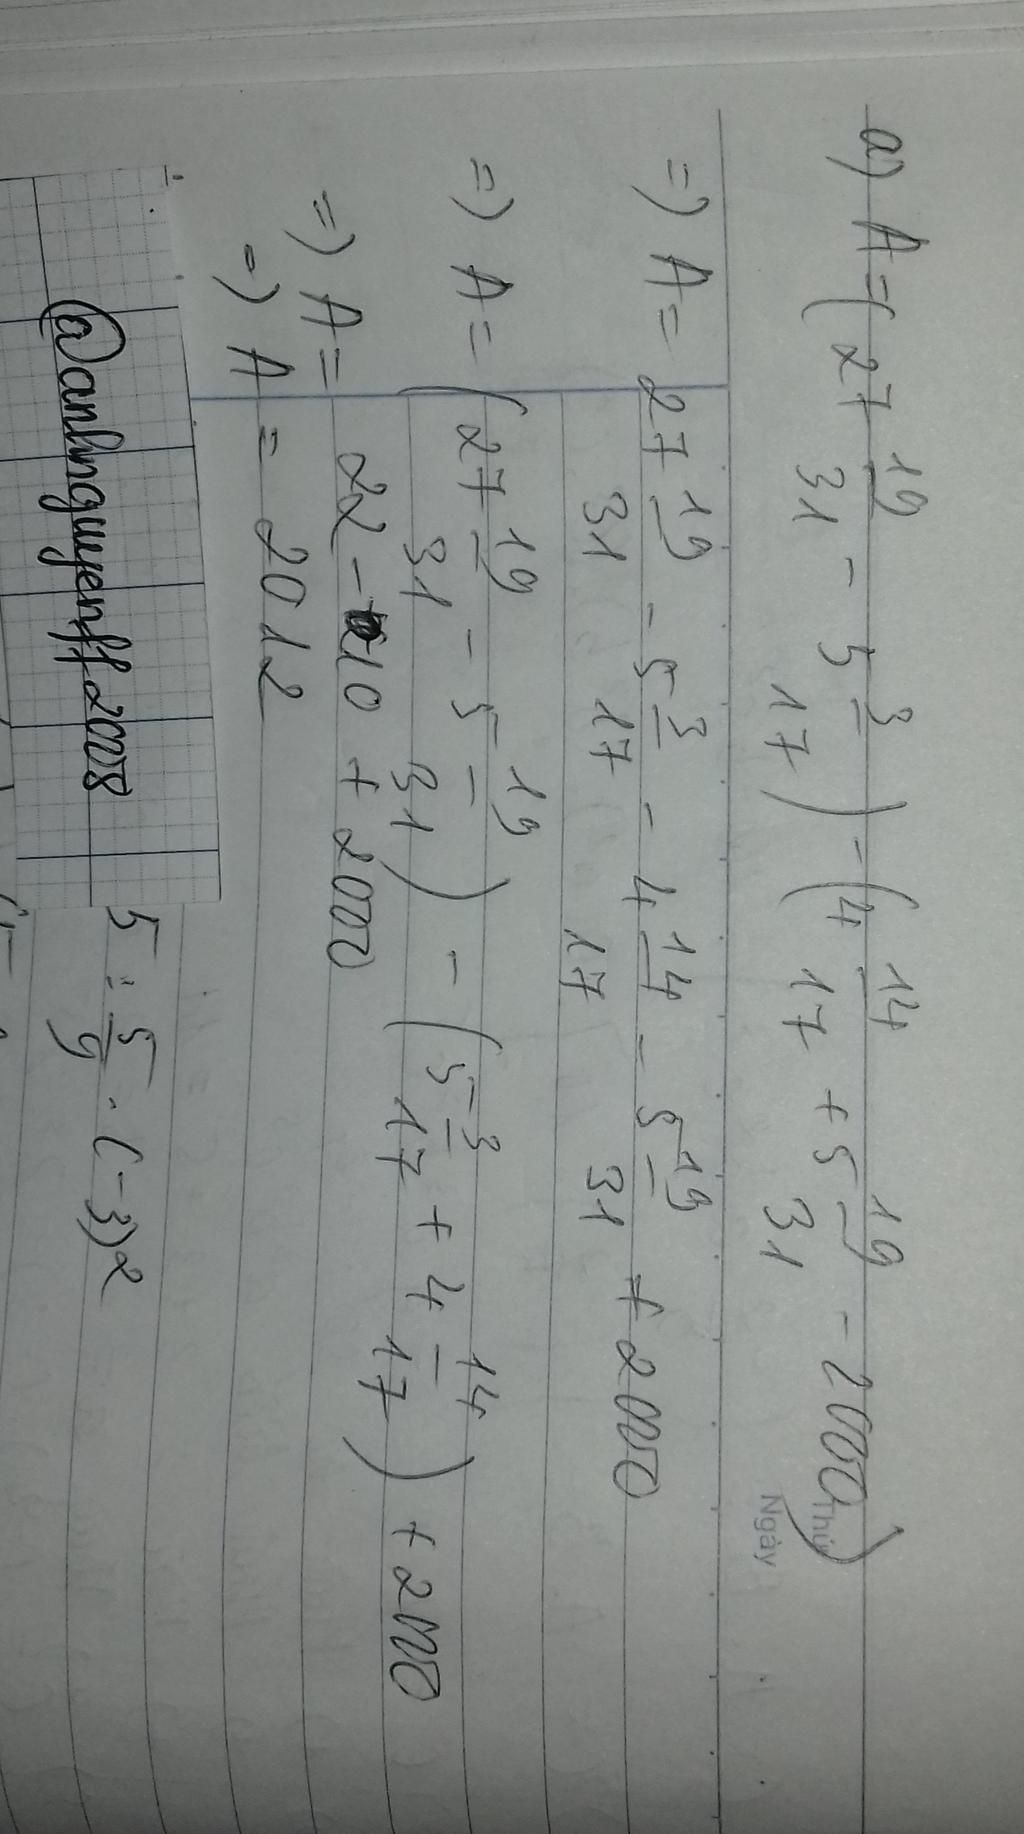 a) A = (27 19/31 - 5 3/17) - (4 14/17 + 5 19/31 - 2000)
Thứ
Ngày
=) A = 27 19/31 - 5 3/17 - 4 14/17 - 5 19/31 + 2000
=) A = (27 19/31 - 5 19/31) - (5 3/17 + 4 14/17) + 2000
=) A = 22 - 10 + 2000
=) A = 2012
@anhnguyenff2008
5 : 5/9 . (-3)2